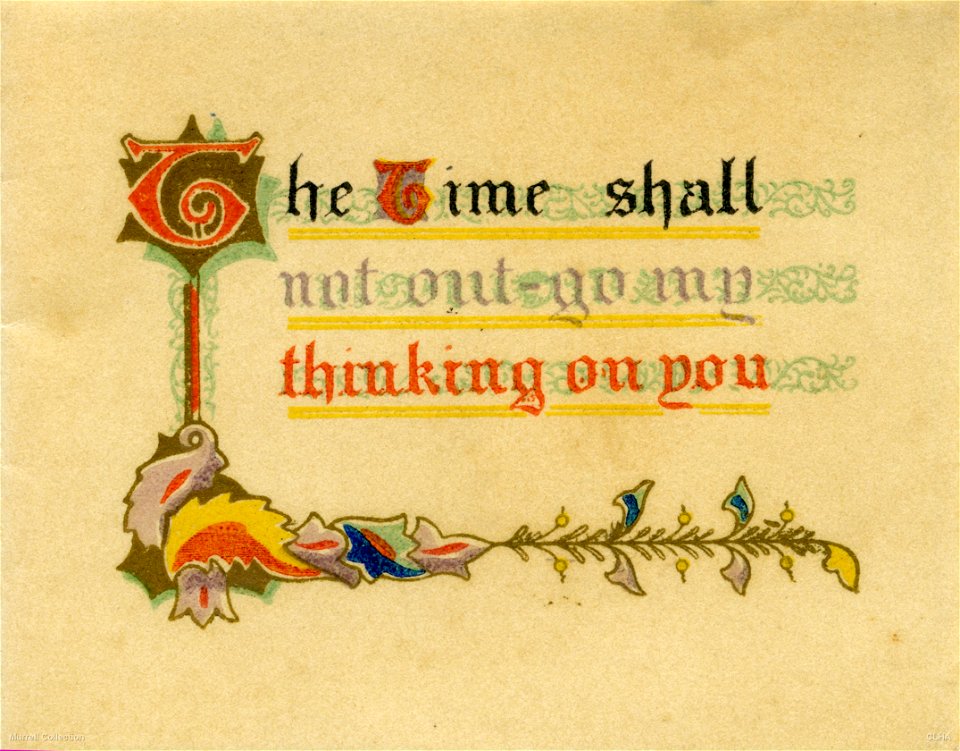 The Time shall
not out-go my
thinking on you
Murrell Collection